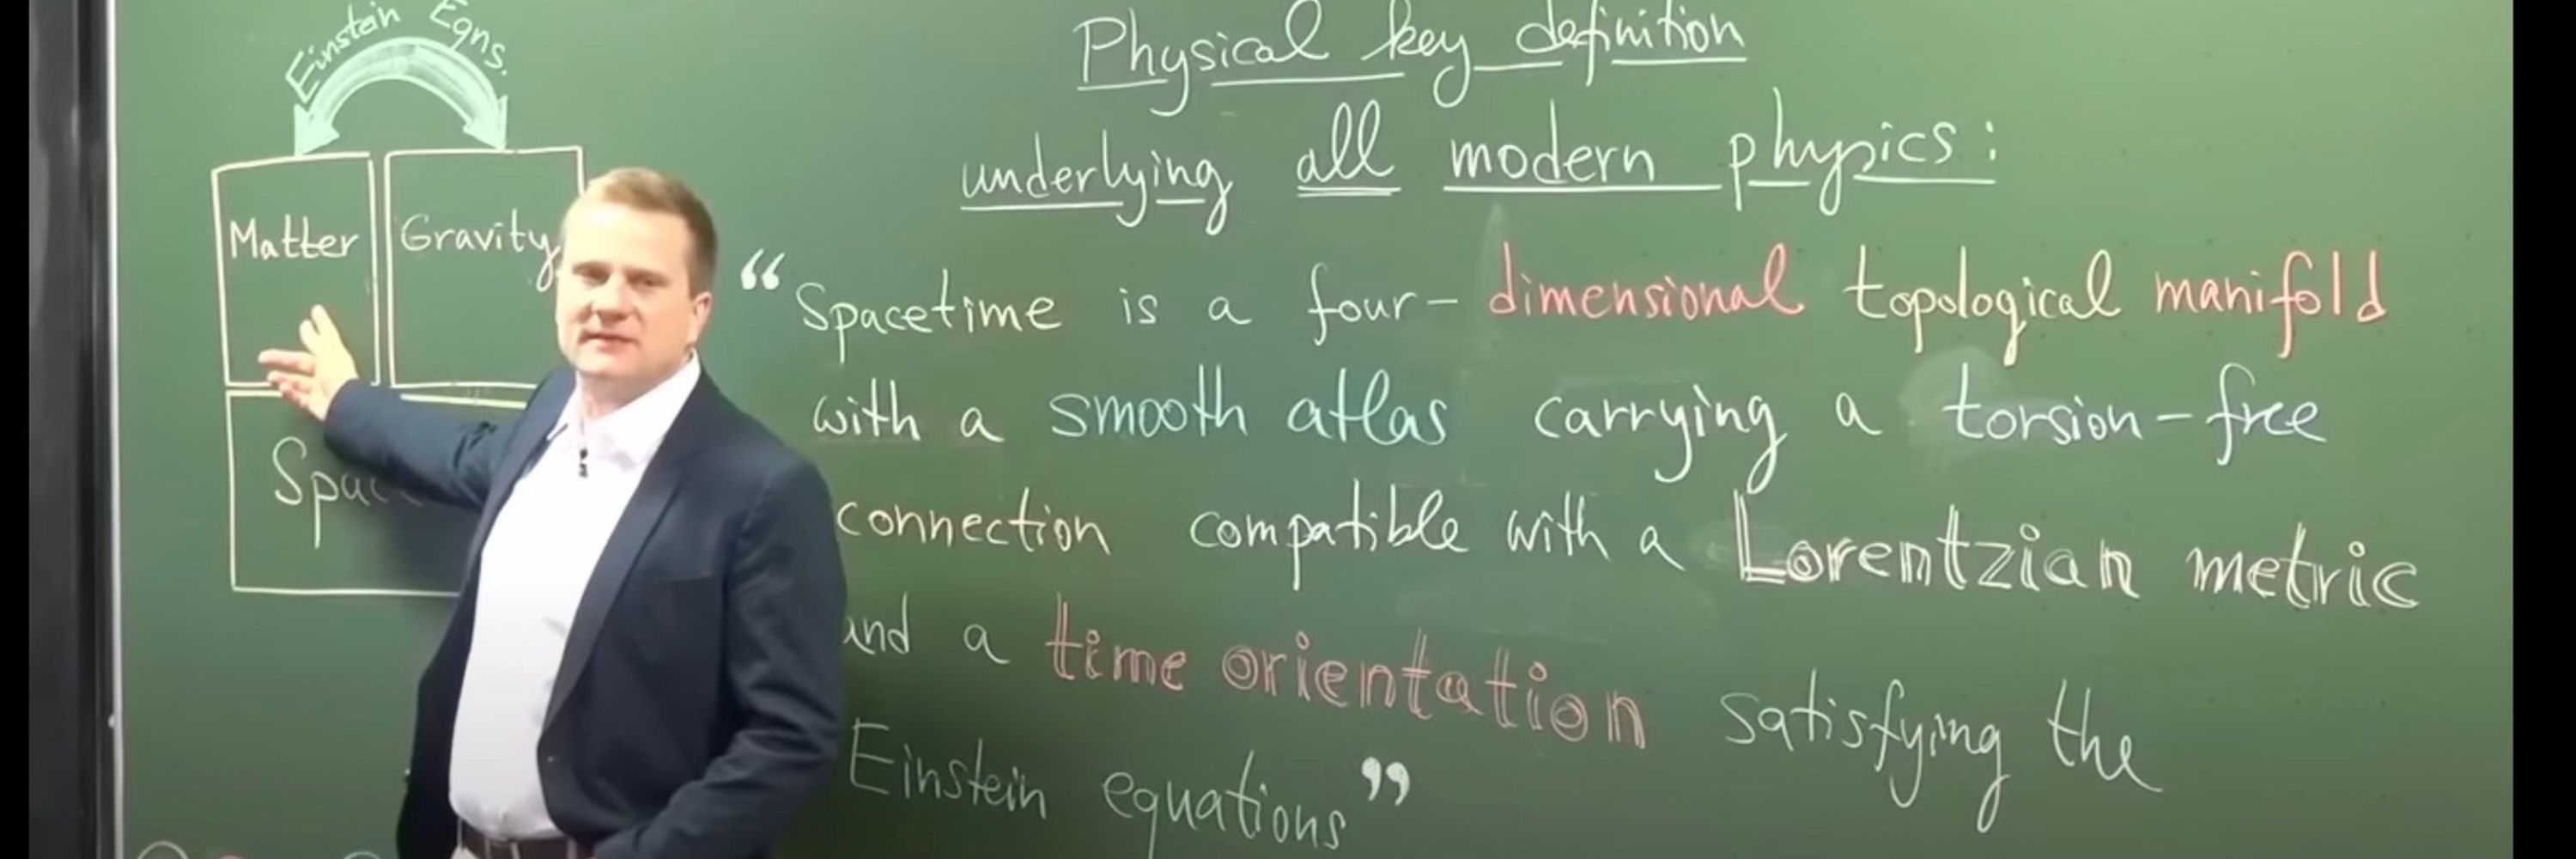 Einstein Eqns.
Matter
Gravity
Physical key definition
underlying all modern physics:
“Spacetime is a four-dimensional topological manifold
with a smooth atlas carrying a torsion-free
connection compatible with a Lorentzian metric
and a time orientation satisfying the
Einstein equations”